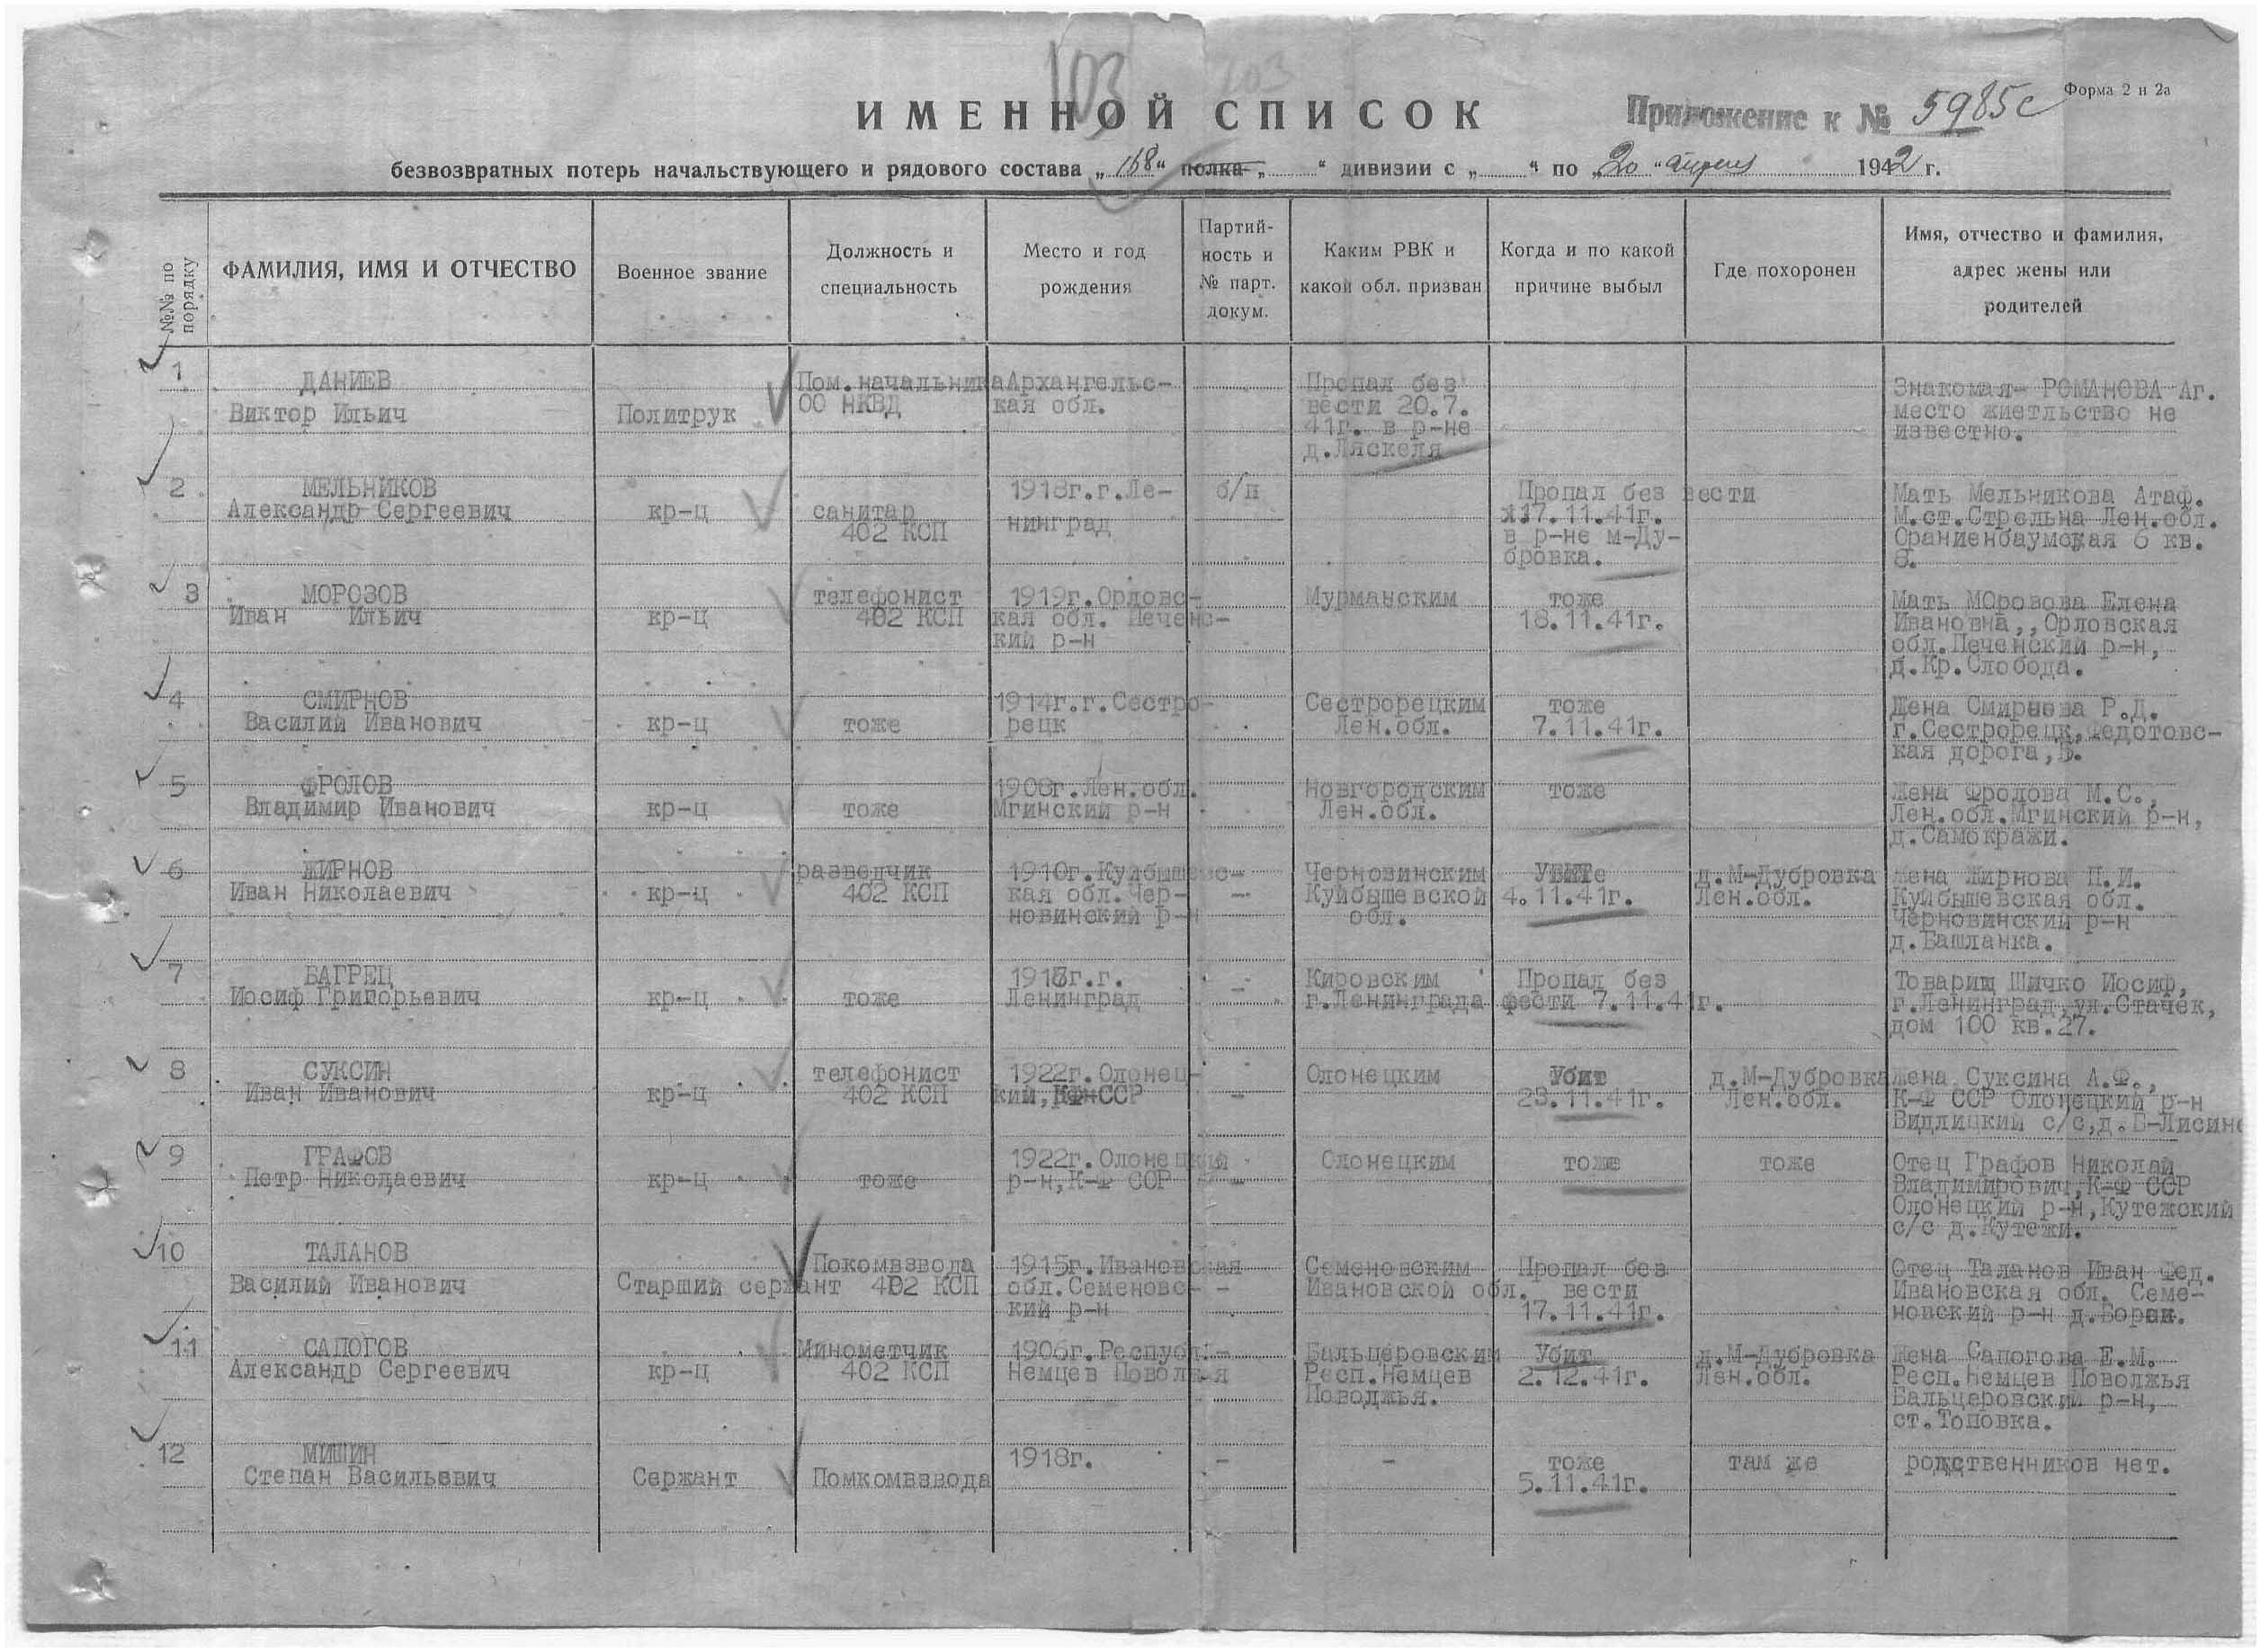 103
103
Форма 2 и 2а
ИМЕННОЙ СПИСОК
Приложение к № 5985с
безвозвратных потерь начальствующего и рядового состава „168“ полка „ “ дивизии с „ “ по „20“ апреля 1942 г.
№№ по порядку
ФАМИЛИЯ, ИМЯ И ОТЧЕСТВО
Военное звание
Должность и
специальность
Место и год
рождения
Партий-
ность и
№ парт.
докум.
Каким РВК и
какой обл. призван
Когда и по какой
причине выбыл
Где похоронен
Имя, отчество и фамилия,
адрес жены или
родителей
1
ДАНИЕВ
Виктор Ильич
Политрук
Пом.начальника
ОО НКВД
Архангельс-
кая обл.
Пропал без
вести 20.7.
41г. в р-не
д.Ляскеля
Знакомая- РОМАНОВА Аг.
место жиетльство не
известно.
2
МЕЛЬНИКОВ
Александр Сергеевич
кр-ц
санитар
402 КСП
1918г.г.Ле-
нинград
б/п
Пропал без вести
17.11.41г.
в р-не м-Ду-
бровка.
Мать Мельникова Атаф.
М.ст.Стрельна Лен.обл.
Ораниенбаумская 6 кв.
8.
3
МОРОЗОВ
Иван Ильич
кр-ц
телефонист
402 КСП
1919г.Орловс-
кая обл. Печенс-
кий р-н
Мурманским
тоже
18.11.41г.
Мать МОрозова Елена
Ивановна,,Орловская
обл.Печенский р-н,
д.Кр.Слобода.
4
СМИРНОВ
Василий Иванович
кр-ц
тоже
1914г.г.Сестро-
рецк
Сестрорецким
Лен.обл.
тоже
7.11.41г.
Жена Смирнова Р.Д.
г.Сестрорецк,Федотовс-
кая дорога,
5
ФРОЛОВ
Владимир Иванович
кр-ц
тоже
1908г.Лен.обл.
Мгинский р-н
Новгородским
Лен.обл.
тоже
Жена Фролова М.С.,
Лен.обл.Мгинский р-н,
д.Самокражи.
6
ЖИРНОВ
Иван Николаевич
кр-ц
разведчик
402 КСП
1910г.Куйбышевс-
кая обл.Чер-
новинский р-н
-
Черновинским
Куйбышевской
обл.
Убит
4.11.41г.
д.М-Дубровка
Лен.обл.
Жена Жирнова П.И.
Куйбышевская обл.
Черновинский р-н
д.Башланка.
7
БАГРЕЦ
Иосиф Григорьевич
кр-ц
тоже
1918г.г.
Ленинград
-
Кировским
г.Ленинграда
Пропал без
вести 7.11.41г.
Товарищ Шичко Иосиф,
г.Ленинград,ул.Стачек,
дом 100 кв.27.
8
СУКСИН
Иван Иванович
кр-ц
телефонист
402 КСП
1922г.Олонец-
кий,КФССР
-
Олонецким
Убит
23.11.41г.
д.М-Дубровка
Лен.обл.
Жена Суксина А.Ф.,
К-Ф ССР Олонецкий р-н
Видлицкий с/с,д.Б-Лисине
9
ГРАФОВ
Петр Николаевич
кр-ц
тоже
1922г.Олонецкий
р-н,К-Ф ССР
-
Олонецким
тоже
тоже
Отец Графов Николай
Владимирович,К-Ф ССР
Олонецкий р-н,Кутежский
с/с д.Кутежи.
10
ТАЛАНОВ
Василий Иванович
Старший сержант
Покомвзвода
402 КСП
1915г.Ивановская
обл.Семеновс-
кий р-н
-
Семеновским
Ивановской обл.
Пропал без
вести
17.11.41г.
Отец Таланов Иван Фед.
Ивановская обл. Семе-
новский р-н
11
САПОГОВ
Александр Сергеевич
кр-ц
Минометчик
402 КСП
1906г.Республ.-
Немцев Поволж-я
Бальцеровским
Респ.Немцев
Поволжья.
Убит
2.12.41г.
д.М-Дубровка
Лен.обл.
Жена Сапогова Е.М.
Респ.Немцев Поволжья
Бальцеровский р-н,
ст.Топовка.
12
МИШИН
Степан Васильевич
Сержант
Помкомвзвода
1918г.
-
-
тоже
5.11.41г.
там же
родственников нет.